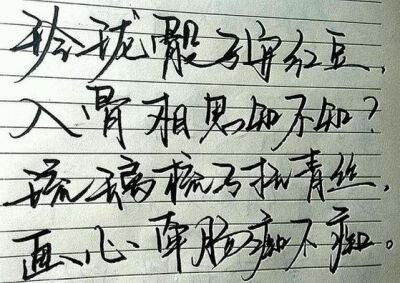 玲珑骰子安红豆，
入骨相思知不知？
琉璃梳子抚青丝，
画心牵肠痴不痴。